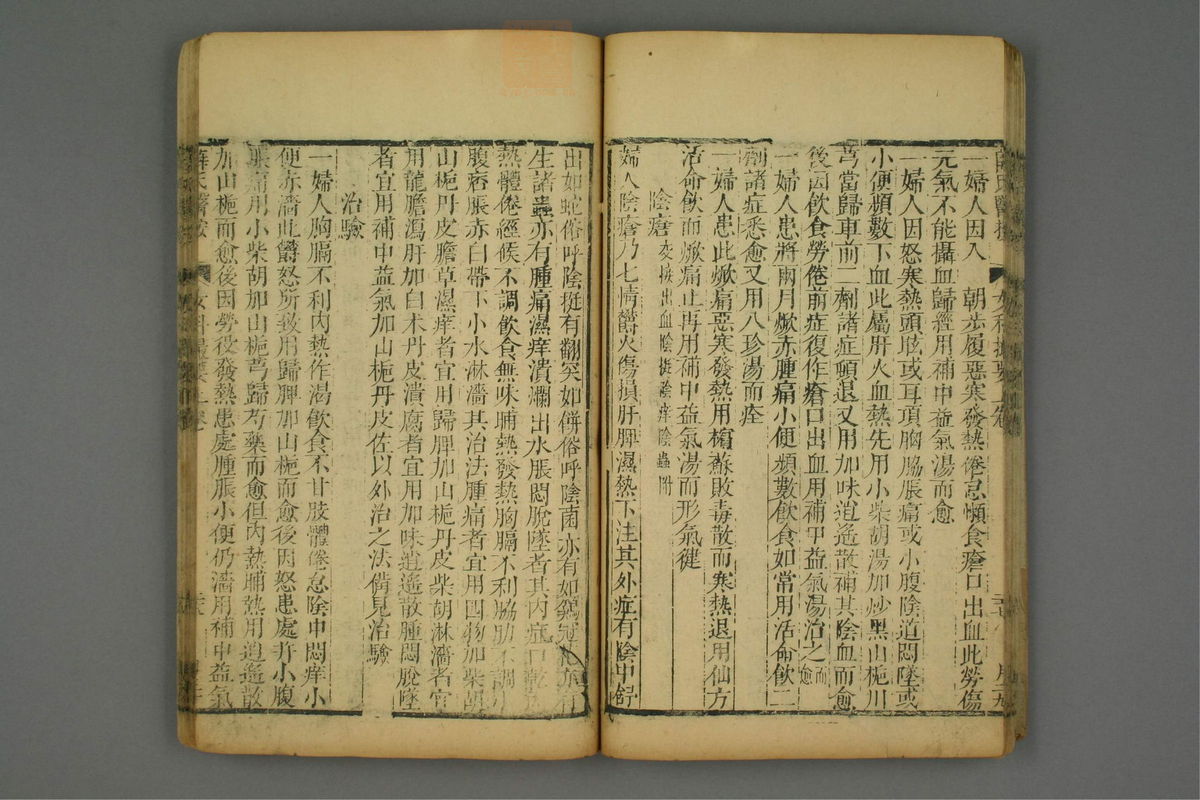 一婦人因入　朝步履惡寒發熱倦怠懶食瘡口出血此勞傷
元氣不能攝血歸經用補中益氣湯而愈
一婦人因怒寒熱頭眩或耳項胸脇脹痛或小腹陰道悶墜或
小便頻數下血此屬肝火血熱先用小柴胡湯加炒黑山梔川
芎當歸車前二劑諸症頓退又用加味逍遙散補其陰血而愈
後因飲食勞倦前症復作瘡口出血用補中益氣湯治之而愈
一婦人患將兩月焮赤腫痛小便頻數飲食如常用活命飲二
劑諸症悉愈又用八珍湯而痊
一婦人患此焮痛惡寒發熱用檳蘇敗毒散而寒熱退用仙方
活命飲而焮痛止再用補中益氣湯而形氣健
陰瘡交接出血陰挺陰痒陰蟲附
婦人陰瘡乃七情鬱火傷損肝脾濕熱下注其外症有陰中舒
出如蛇俗呼陰挺有翻突如餅俗呼陰菌亦有如鷄冠
生諸蟲亦有腫痛濕痒潰爛出水脹悶脫墜者其內症口乾
熱體倦經候不調飲食無味晡熱發熱胸膈不利脇肋不調
腹痞脹赤白帶下小水淋濇其治法腫痛者宜用四物加柴胡
山梔丹皮膽草濕痒者宜用歸脾加山梔丹皮柴胡淋濇者宜
用龍膽瀉肝加白朮丹皮潰腐者宜用加味逍遙散腫悶脫墜
者宜用補中益氣加山梔丹皮佐以外治之法備見治驗
治驗
一婦人胸膈不利內熱作渴飲食不甘肢體倦怠陰中悶痒小
便赤濇此鬱怒所致用歸脾加山梔而愈後因怒患處并小腹
脹痛用小柴胡加山梔芎歸芍藥而愈但內熱晡熱用逍遙散
加山梔而愈後因勞役發熱患處腫脹小便仍濇用補中益氣